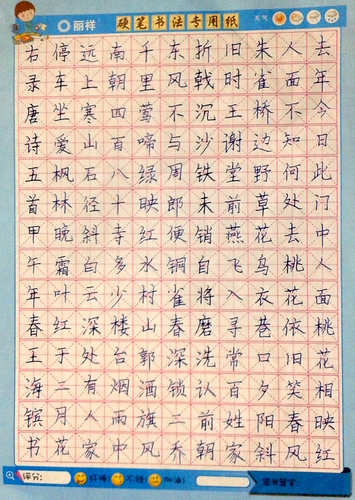 丽祥
硬笔书法专用纸
天气
去年今日此门中人面桃花相映红
人面不知何处去桃花依旧笑春风
朱雀桥边野草花乌衣巷口夕阳斜
旧时王谢堂前燕飞入寻常百姓家
折戟沉沙铁未销自将磨洗认前朝
东风不与周郎便铜雀春深锁二乔
千里莺啼绿映红水村山郭酒旗风
南朝四百八十寺多少楼台烟雨中
远上寒山石径斜白云深处有人家
停车坐爱枫林晚霜叶红于二月花
右录唐诗五首甲午年春王海镔书
评分: